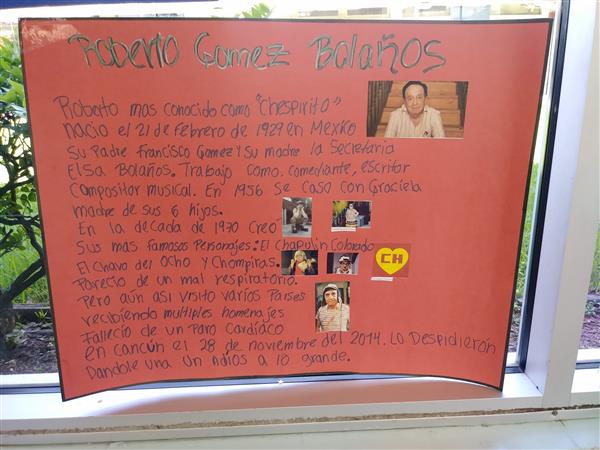 Roberto Gomez Bolaños
Roberto mas conocido como "Chespirito"
nacio el 21 de Febrero de 1929 en Mexico
Su Padre Francisco Gomez y su madre la Secretaria
Elsa Bolaños. Trabajo como. comediante, escritor
Compositor musical. En 1956 Se Casa con Graciela
madre de sus 6 hijos.
En la decada de 1970 Creo
Sus mas Famosos Personajes: El Chapulin Colorado
El Chavo del Ocho y Chompiras.
CH
Parecio de un mal respiratorio.
Pero aún asi visito varios Paises
recibiendo multiples homenajes
Fallecio de un Paro Cardíaco
en Cancún el 28 de noviembre del 2014. Lo Despidieron
Dandole una un Adios a lo grande.